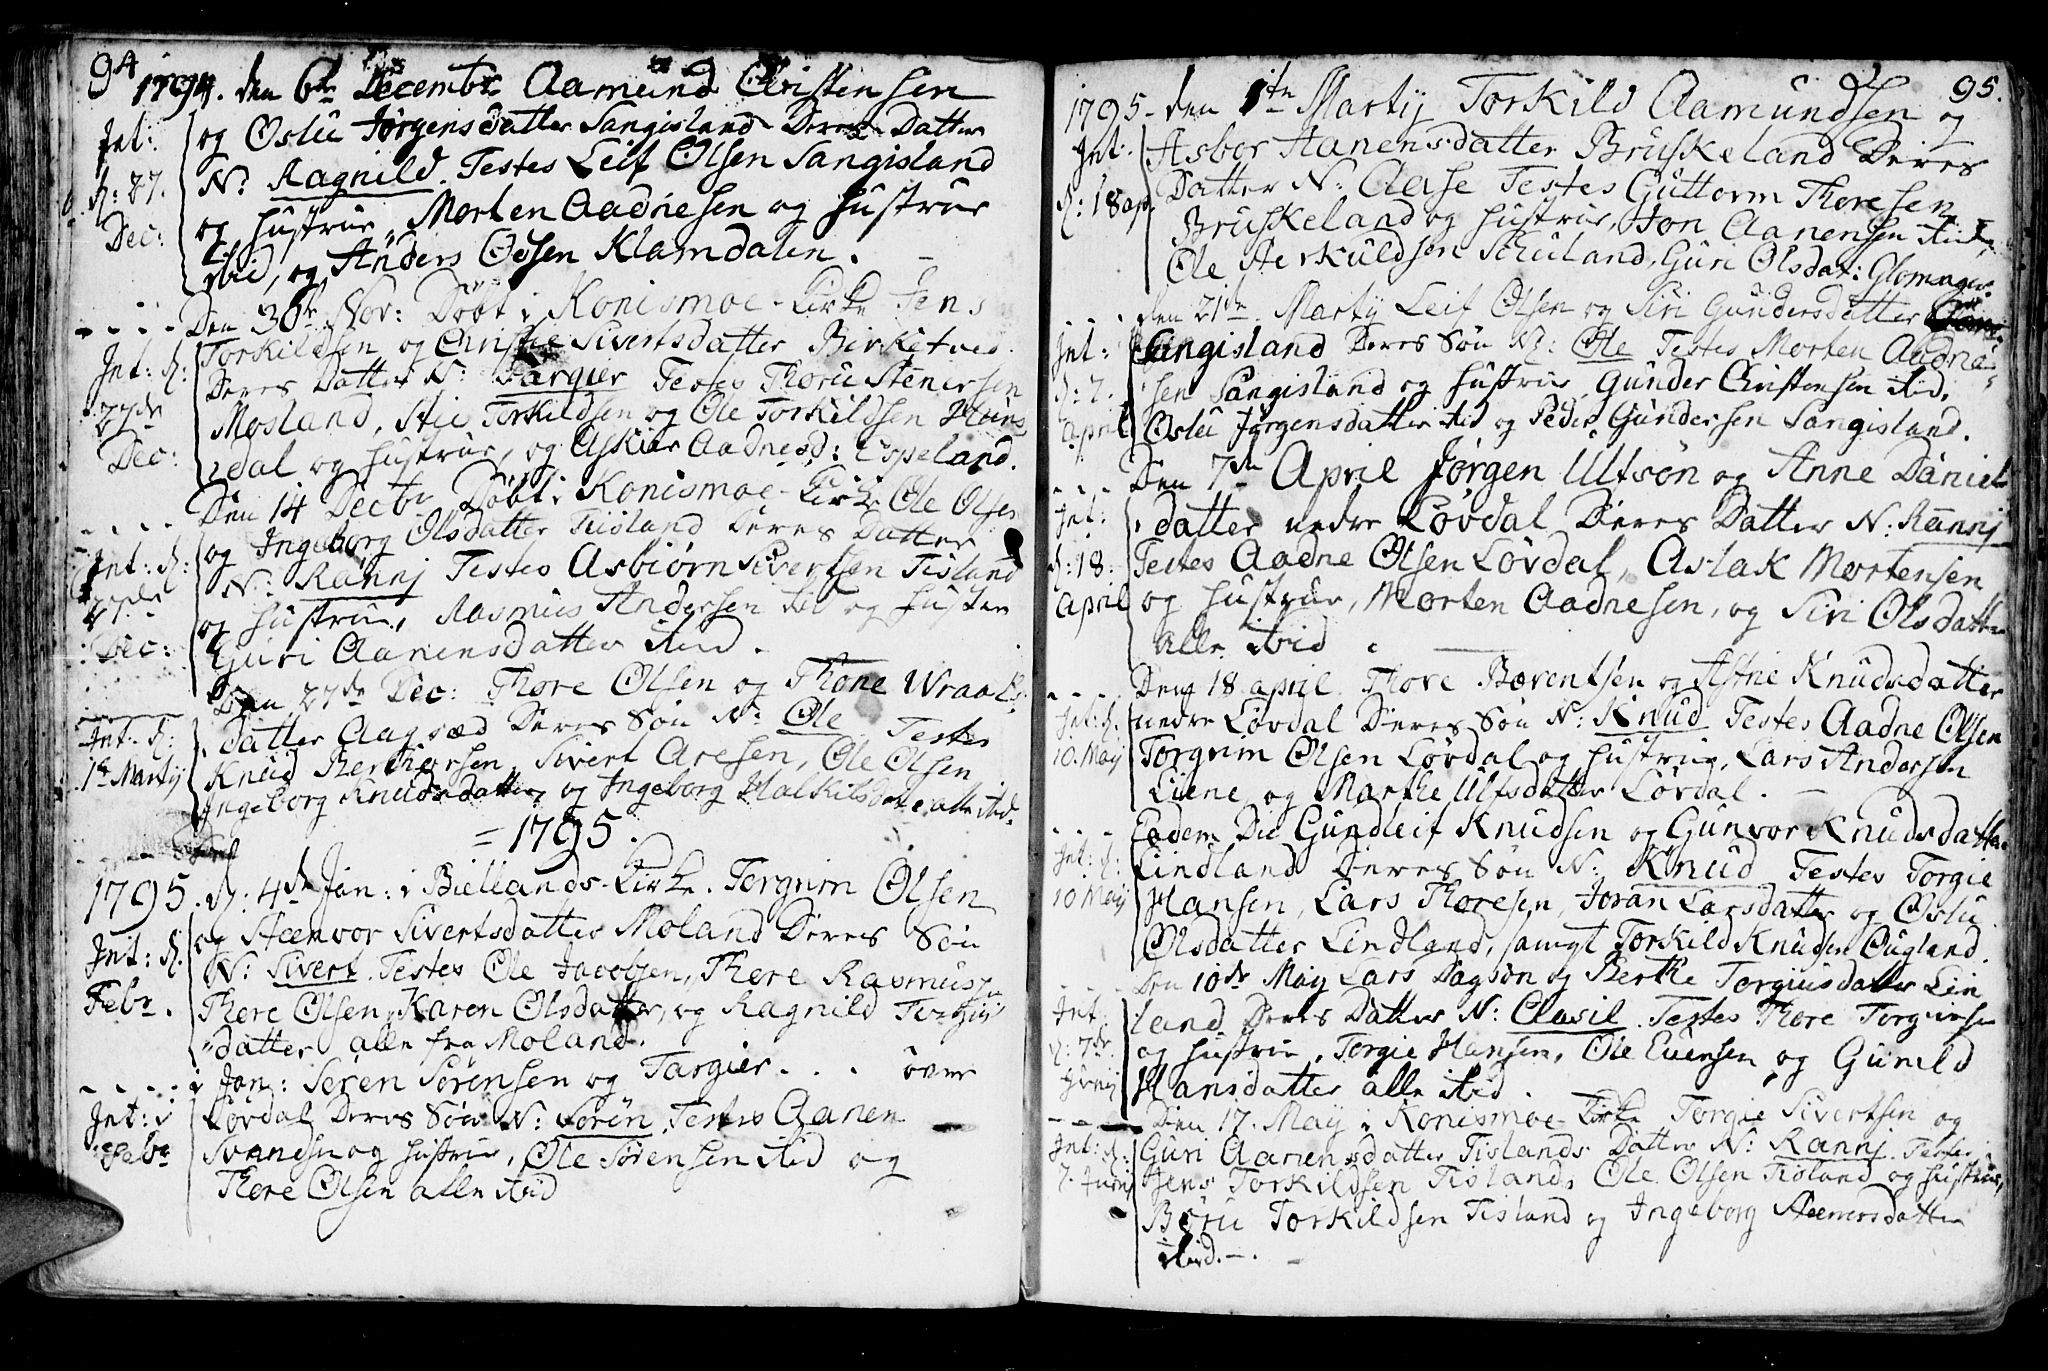 94
1794. den 6te Decembr Aamund Christensen
Int: og Oslu Jørgensdatter Sangisland Deres Datter
d: 27. N: Ragnild. Testes Leif Olsen Sangisland
Dec: og hustrue, Morten Aadnesen og hustrue
ibid, og Anders Olsen Klamdalen.
Den 30te Nov: Døbt i Konismoe Kirke Jens
Int: d: Torkildsen og Christie Sivertsdatter Birketved
27de Deres Datter N: Targier Testes Thoru Stenersen
Dec: Mosland, Stie Torkildsen og Ole Torkildsen Huns
dal og hustrue, og Askier Aadnesd: Espeland.
Den 14 Decbr Døbt i Konismoe Kirke Ole Olsen
og Ingeborg Olsdatter Tiisland Deres Datter
Int: d: N: Rannj Testes Asbiørn Sivertsen Tisland
27de og hustrue, Rasmus Andersen ibid og hustrue
Dec: Guri Aanensdatter ibid.
Den 27de Dec: Thore Olsen og Thone Wraals
Int. d: datter Aagsæd Deres Søn N: Ole Testes
1te Martij Knud Berthersen, Sivert Aresen, Ole Olsen
Ingeborg Knudsdatter, og Ingeborg Halkilsdatter alle ibid.
= 1795.
1795. d: 4de Jan: i Biellands Kirke. Torgrim Olsen
og Steenvor Sivertsdatter Moland Deres Søn
Int: d. N: Sivert Testes Ole Jacobsen, Thore Rasmus
Febr. Thore Olsen, Karen Olsdatter, og Ragnild Torgius
datter alle fra Moland.
i Jan: Søren Sørensen og Targier . . . over
Int: i Løvdal Deres Søn N: Søren, Testes Aanen
Febr Svensen og hustrue, Ole Sørensen ibid og
Thore Olsen alle ibid
95.
1795. den 1te Martij Torkild Aamundsen og
Int. Asbor Aanensdatter Bruskeland Deres
d: 18 ap. Datter N: Aase Testes Guttorm Thoresen
Bruskeland og hustrue, Jon Aanensen ibid,
Ole Terkuldsen Schuland, Guri Olsdat: Glomager
den 21de Martij Leif Olsen og Siri Gundersdatter
Int: Sangisland Deres Søn N: Ole Testes Morten Aadne
d: 7. sen Sangisland og hustrue, Gunder Christensen ibid,
April Oslu Jørgensdatter ibid og Peder Gundersen Sangisland.
Den 7de April Jørgen Ulfsøn og Anne Daniel
Int: datter nedre Løvdal Deres Datter N: Rannj
d: 18. Testes Aadne Olsen Løvdal, Aslak Mortensen
April og hustrue, Morten Aadnesen, og Siri Olsdatter
alle ibid.
Den 18 april. Thore Bærentsen og Astrie Knudsdatter
Int: d: nedre Løvdal Deres Søn N: Knud Testes Aadne Olsen
10. Maij Torgrim Olsen Løvdal og hustrue, Lars Andersen
Liene og Marthe Ulfsdatter Løvdal.
Eodem Die Gundleif Knudsen og Gunvor Knudsdatter
Int: d: Lindland Deres Søn N: Knud Testes Torgie
10 Maij Hansen, Lars Thoresen, Joran Larsdatter og Oslu
Olsdatter Lindland, samt Torkild Knudsen Øugland.
Den 10de Maij Lars Dagson og Berthe Torgiusdatter Lin
Int. land Deres Datter N: Aasil. Testes Thore Torgiusen
d: 7de og hustrue, Torgie Hansen, Ole Evensen og Gunild
Junij Hansdatter alle ibid.
Den 17. Maij i Konismoe Kirke Torgie Sivertsen og
Int: d: Guri Aanensdatter Tislands Datter N: Rannj. Testes
7. Junij Jens Torkildsen Tisland, Ole Olsen Tisland og hustrue,
Børu Torkildsen Tisland og Ingeborg Steenersdatter
ibid.